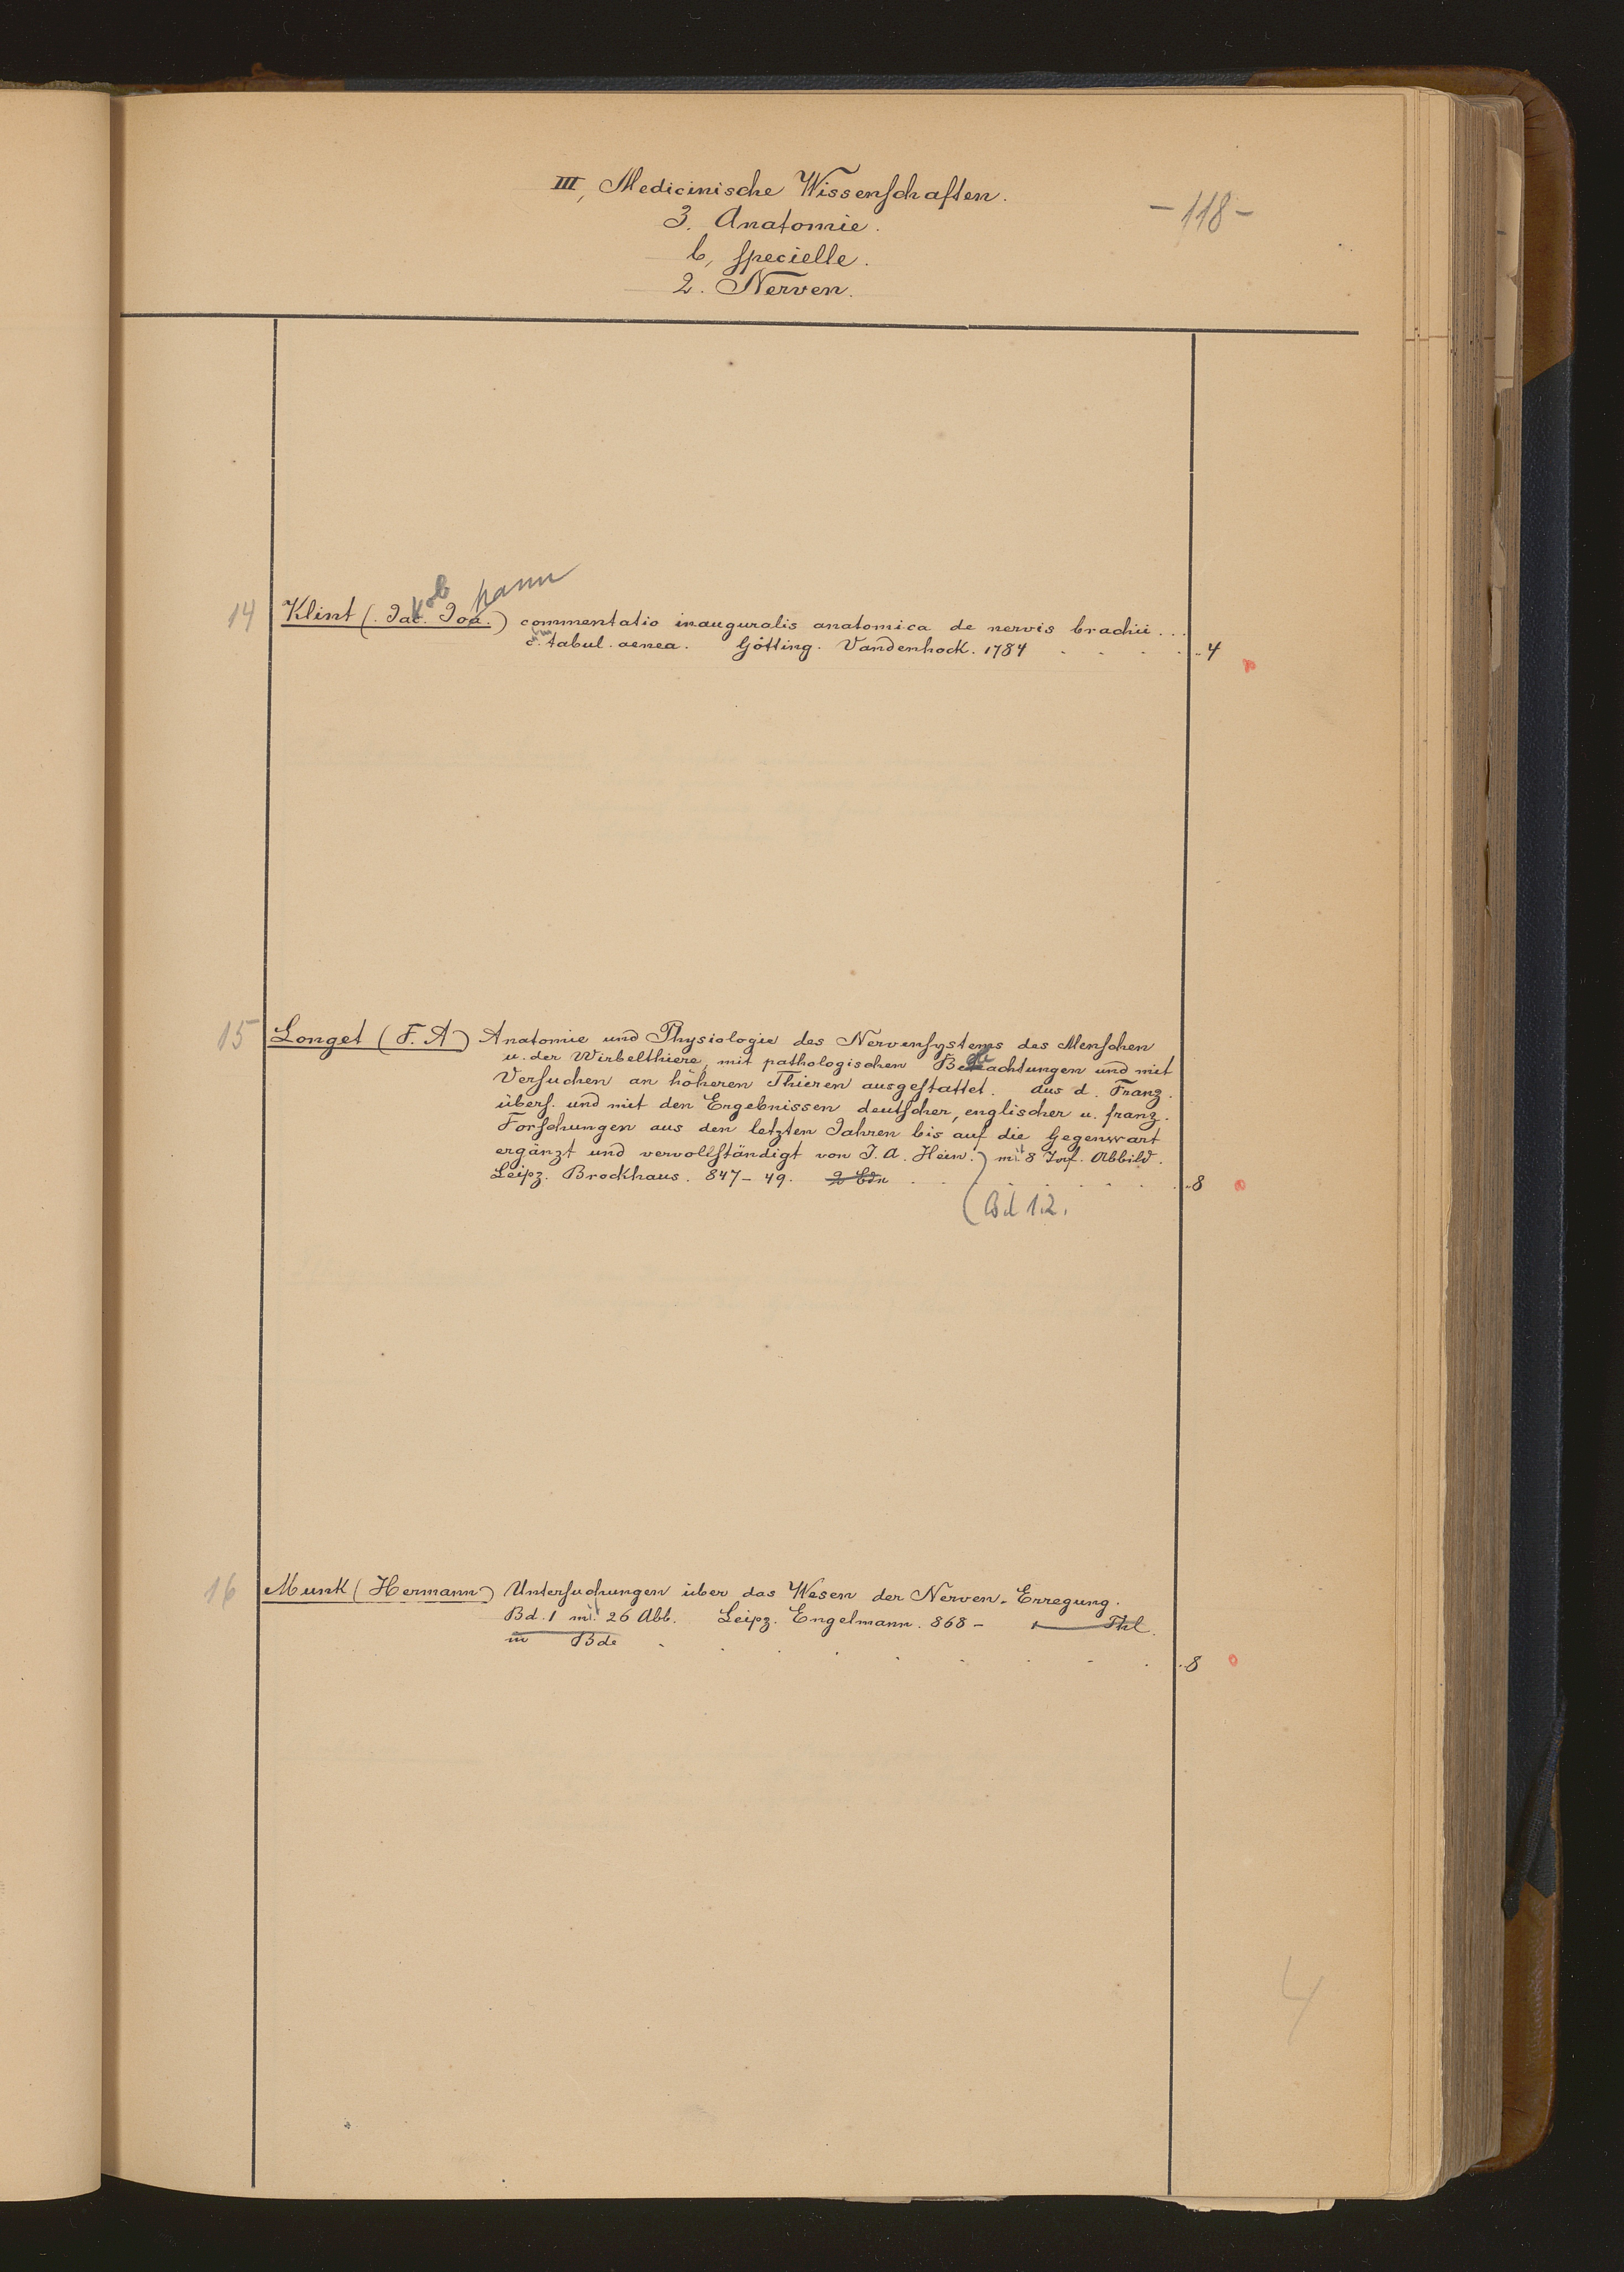 III, Medicinische Wissenschaften.
- 118 -
3. Anatomie.
b, specielle.
2. Nerven.
kob hann
14 Klint (. Jac. Joa.) commentatio inauguralis anatomica de nervis brachii ...
c. tabul. aenea. Götting. Vandenhock. 1784 . . . . .. 4
15 Longet (F. A) Anatomie und Physiologie des Nervensystems des Menschen
u. der Wirbelthiere, mit pathologischen Beobachtungen und mit
Versuchen an höheren Thieren ausgestattet. Aus d. Franz.
übers. und mit den Ergebnissen deutscher, englischer u. franz.
Forschungen aus den letzten Jahren bis auf die Gegenwart
ergänzt und vervollständigt von J. A. Hein.) mit 8 Taf. Abbild.
Leipz. Brockhaus. 847-49. 2 Bdn . . . . . . . .. 8
(Bd 1.2.
16 Munk (Hermann) Untersuchungen über das Wesen der Nerven-Erregung.
Bd. 1 mit 26 Abb. Leipz. Engelmann. 868 - 1 Thl.
in Bde . . . . . . . . . .. 8
4